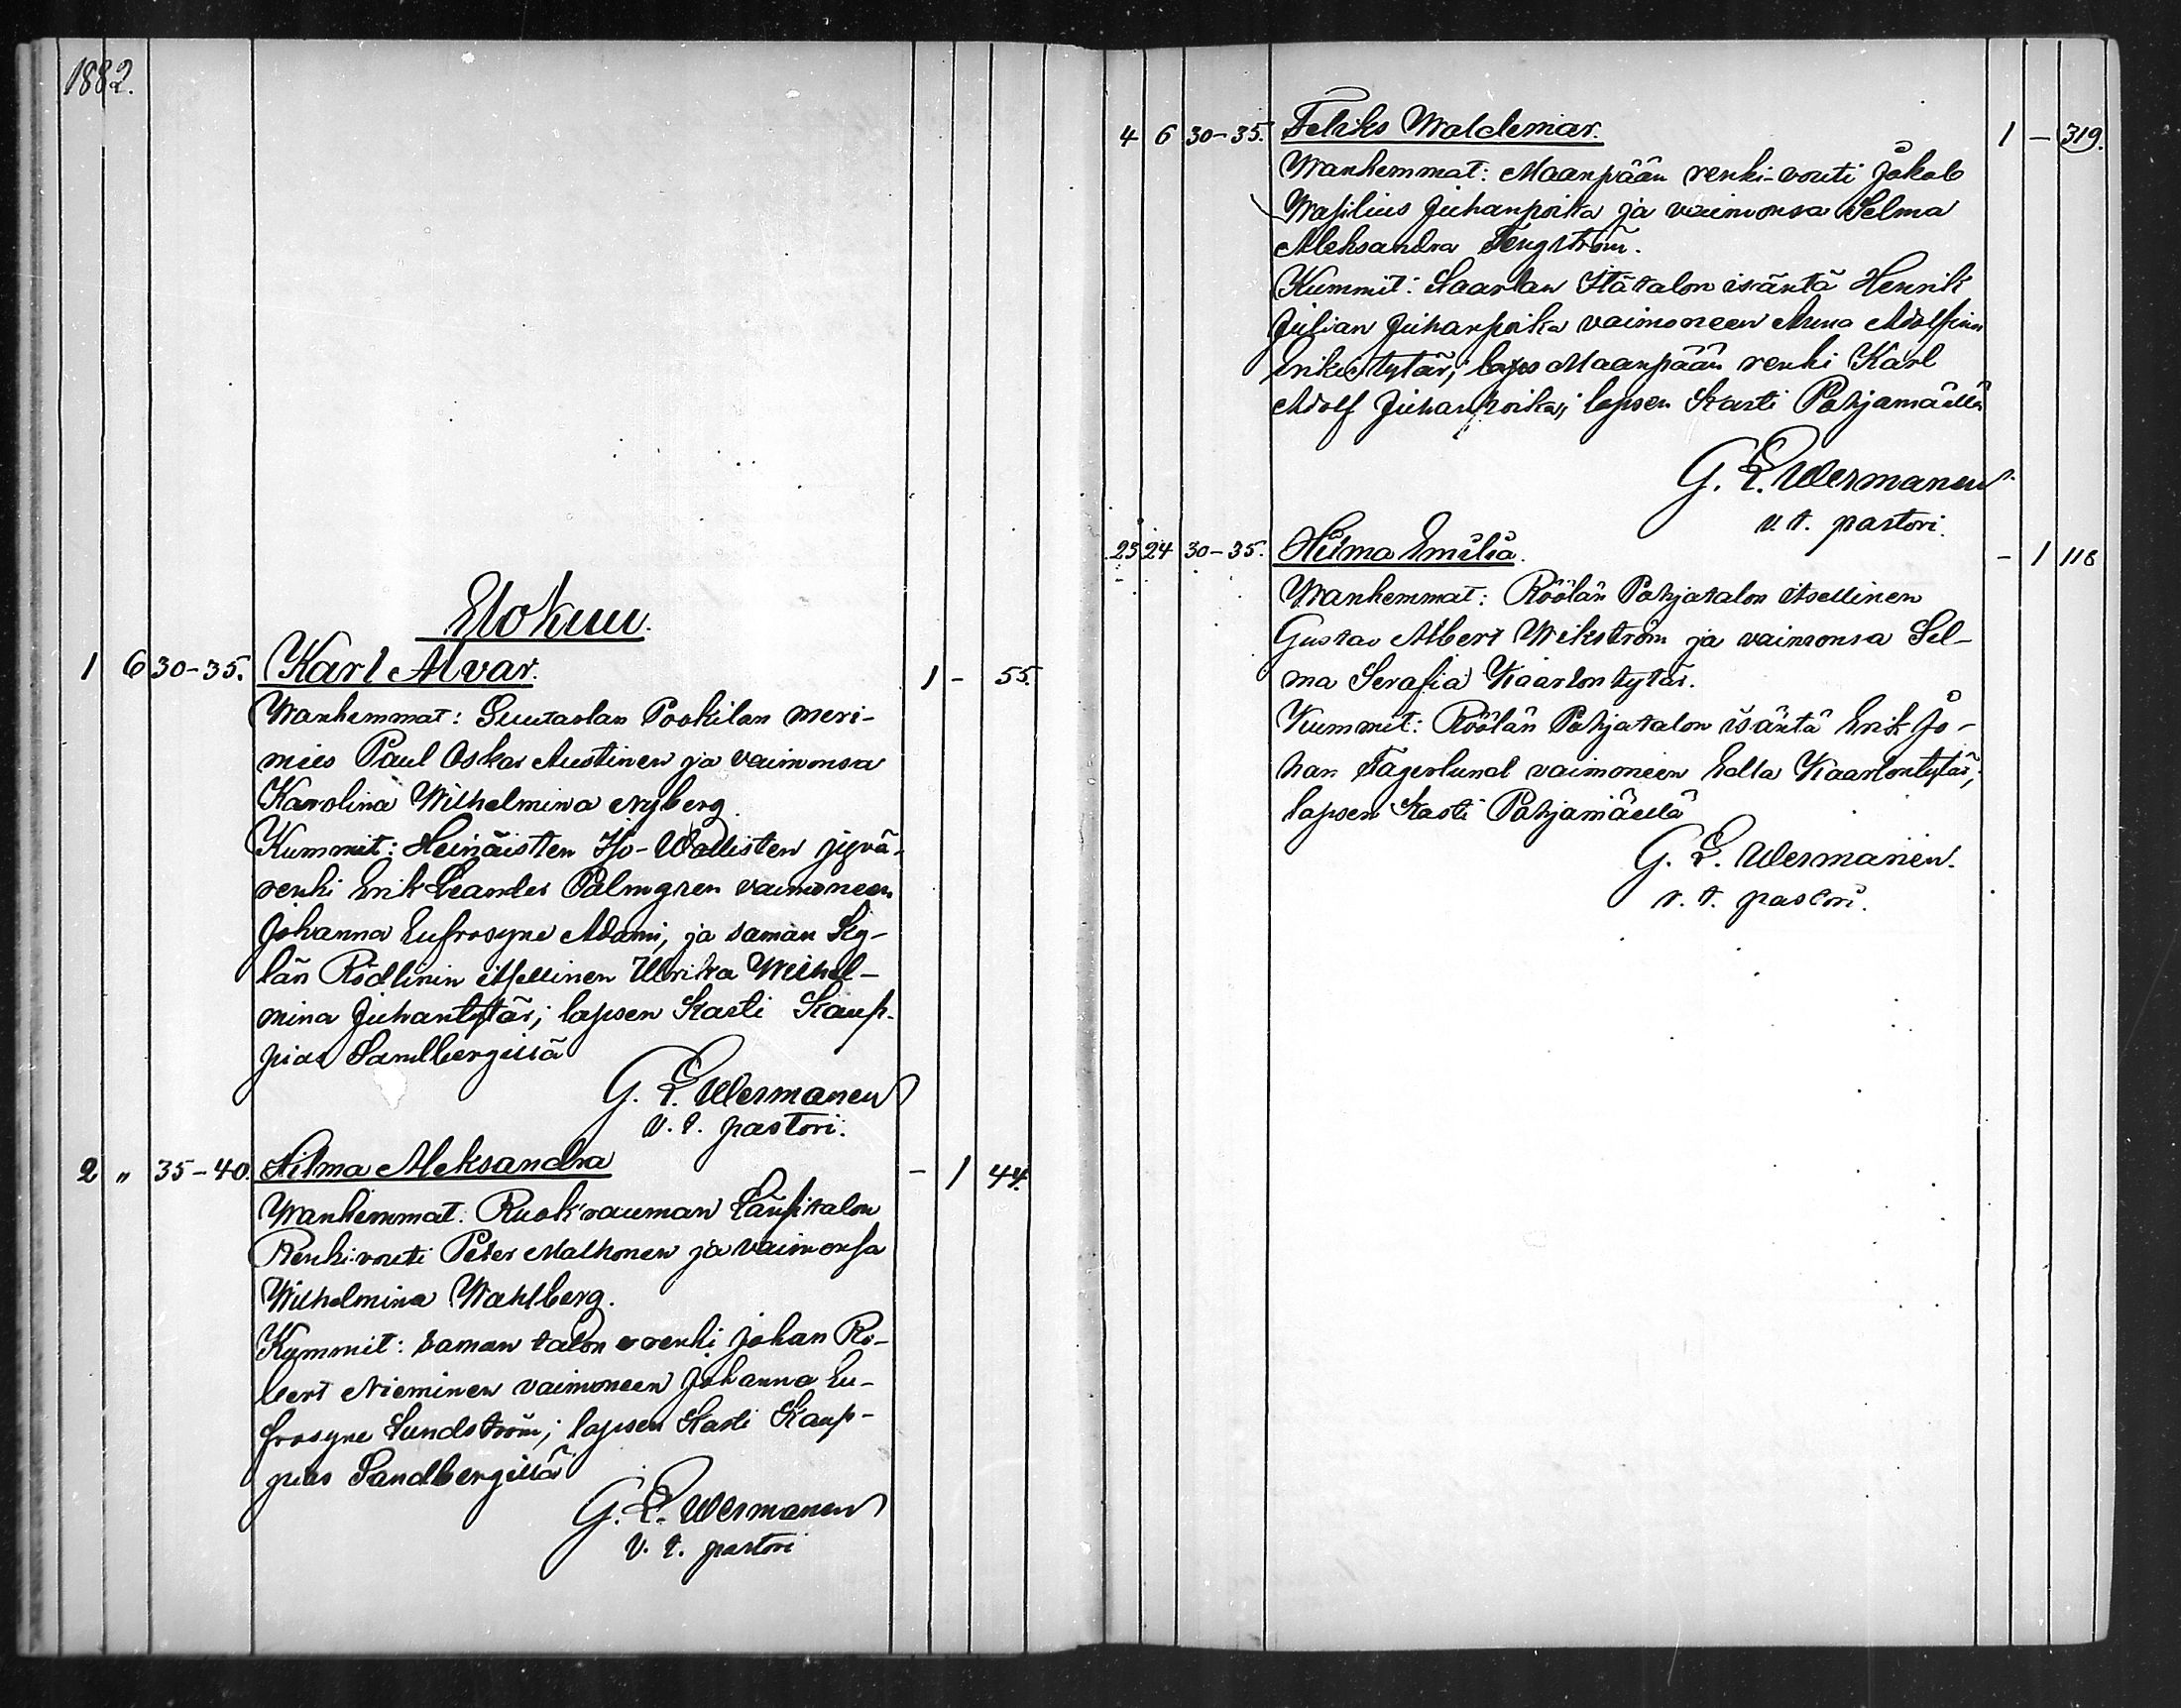 1882.
Elokuu.
1 6 30-35. Karl Alvar. 1 - 55.
Wanhemmat: Luutarlan Pookilan meri-
mies Paul Oskar Austinen ja vaimonsa
Karolina Wilhelmina Nyberg.
Kummit: Heinäisten Iso-Wallisten jyvä-
renki Erik Leander Palmgren vaimoneen
Johanna Eufrosyne Adami, ja saman Ky-
län Rödlinin itsellinen Ulrika Wilhel-
mina Juhantytär; lapsen Kasti Kaup-
pias Sandbergillä
G. E. Wermanen
v. t. pastori.
2 " 35-40. Hilma Aleksandra - 1 44.
Wanhemmat: Ruokrauman Laupitalon
Renki-vouti Peter Malhonen ja vaimonsa
Wilhelmina Wahlberg.
Kummit: saman talon renki Johan Ro-
bert Nieminen vaimoneen Johanna Eu-
frosyne Sundström; lapsen Kasti Kaup-
pias Sandbergillä
G. E. Wermanen
v. t. pastori
4 6 30-35. Feliks Waldemar. 1 - 319.
Wanhemmat: Maanpään renki-vouti Jakob
Wasilius Juhanpoika ja vaimonsa Selma
Aleksandra Tengström.
Kummit: Saarlan Itätalon isäntä Henrik
Julian Juhanpoika vaimoneen Anna Adolfina
Erikintytär; Maanpään renki Karl
Adolf Juhanpoika; lapsen Kasti Pohjamäellä
G. E. Wermanen
v. t. pastori.
23 24 30-35. Hilma Emilia. - 1 118
Wanhemmat: Röölän Pohjatalon itsellinen
Gustav Albert Wikström ja vaimonsa Sel-
ma Serafia Kaarlontytär.
Kummit: Röölän Pohjatalon isäntä Erik Jo-
han Fagerlund vaimoneen Edla Kaarlontytär;
lapsen Kasti Pohjamäellä
G. E. Wermanen.
v. t. pastori.